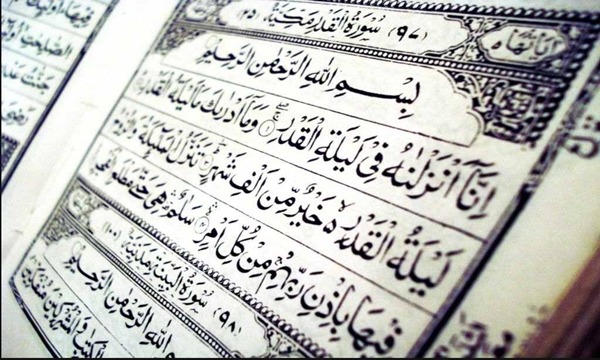 (٩٧) سُوْرَةُ الْقَدْرِ مَكِّيَّةٌ (٢٥)
بِسْمِ اللهِ الرَّحْمٰنِ الرَّحِيْمِ
اِنَّآ اَنْزَلْنٰهُ فِيْ لَيْلَةِ الْقَدْرِ ۝١ وَمَآ اَدْرٰىكَ مَا لَيْلَةُ الْقَدْرِ
لَيْلَةُ الْقَدْرِ ۙ خَيْرٌ مِّنْ اَلْفِ شَهْرٍ ۝ تَنَزَّلُ الْمَلٰٓئِكَةُ وَالرُّوْحُ
فِيْهَا بِاِذْنِ رَبِّهِمْ مِنْ كُلِّ اَمْرٍ ۝ سَلٰمٌ ۛ هِيَ حَتّٰى مَطْلَعِ
(٩٨) سُوْرَةُ الْبَيِّنَةِ مَدَنِيَّةٌ (١٠٠)
بِسْمِ اللهِ الرَّحْمٰنِ الرَّحِيْمِ